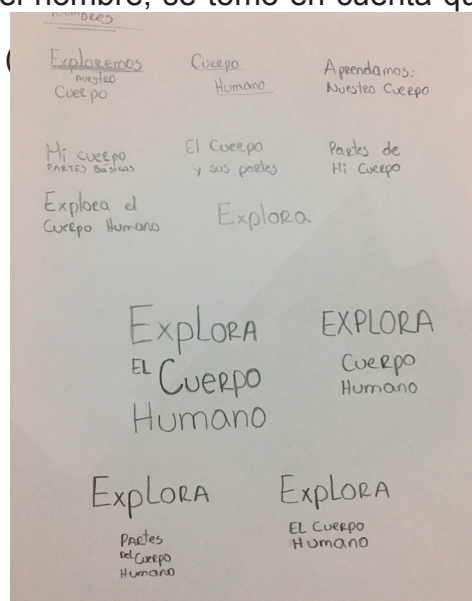 el nombre, se tomó en cuenta qu
(
NOMBRES
Exploremos
nuestro
Cuerpo
Cuerpo
Humano
Aprendamos:
Nuestro Cuerpo
Mi cuerpo
PARTES Básicas
El Cuerpo
y sus partes
Partes de
Mi Cuerpo
Explora el
Cuerpo Humano
Explora
ExpLORA
EL Cuerpo
Humano
EXPLORA
Cuerpo
Humano
ExpLORA
PARtes
Del Cuerpo
Humano
ExpLORA
EL Cuerpo
Humano